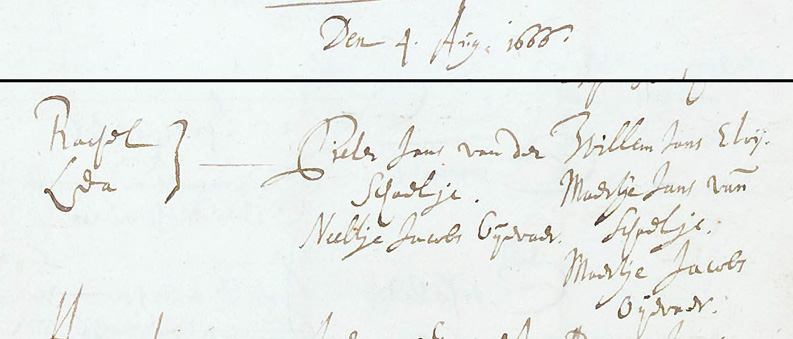 Den 4. Aug. 1666.
Rachel
Lea
Pieter Jans van der
Scheltje.
Neeltje Jacobs Oijevaer.
Willem Jans
Maertje Jans van
Scheltje.
Maertje Jacobs
Oijevaer.